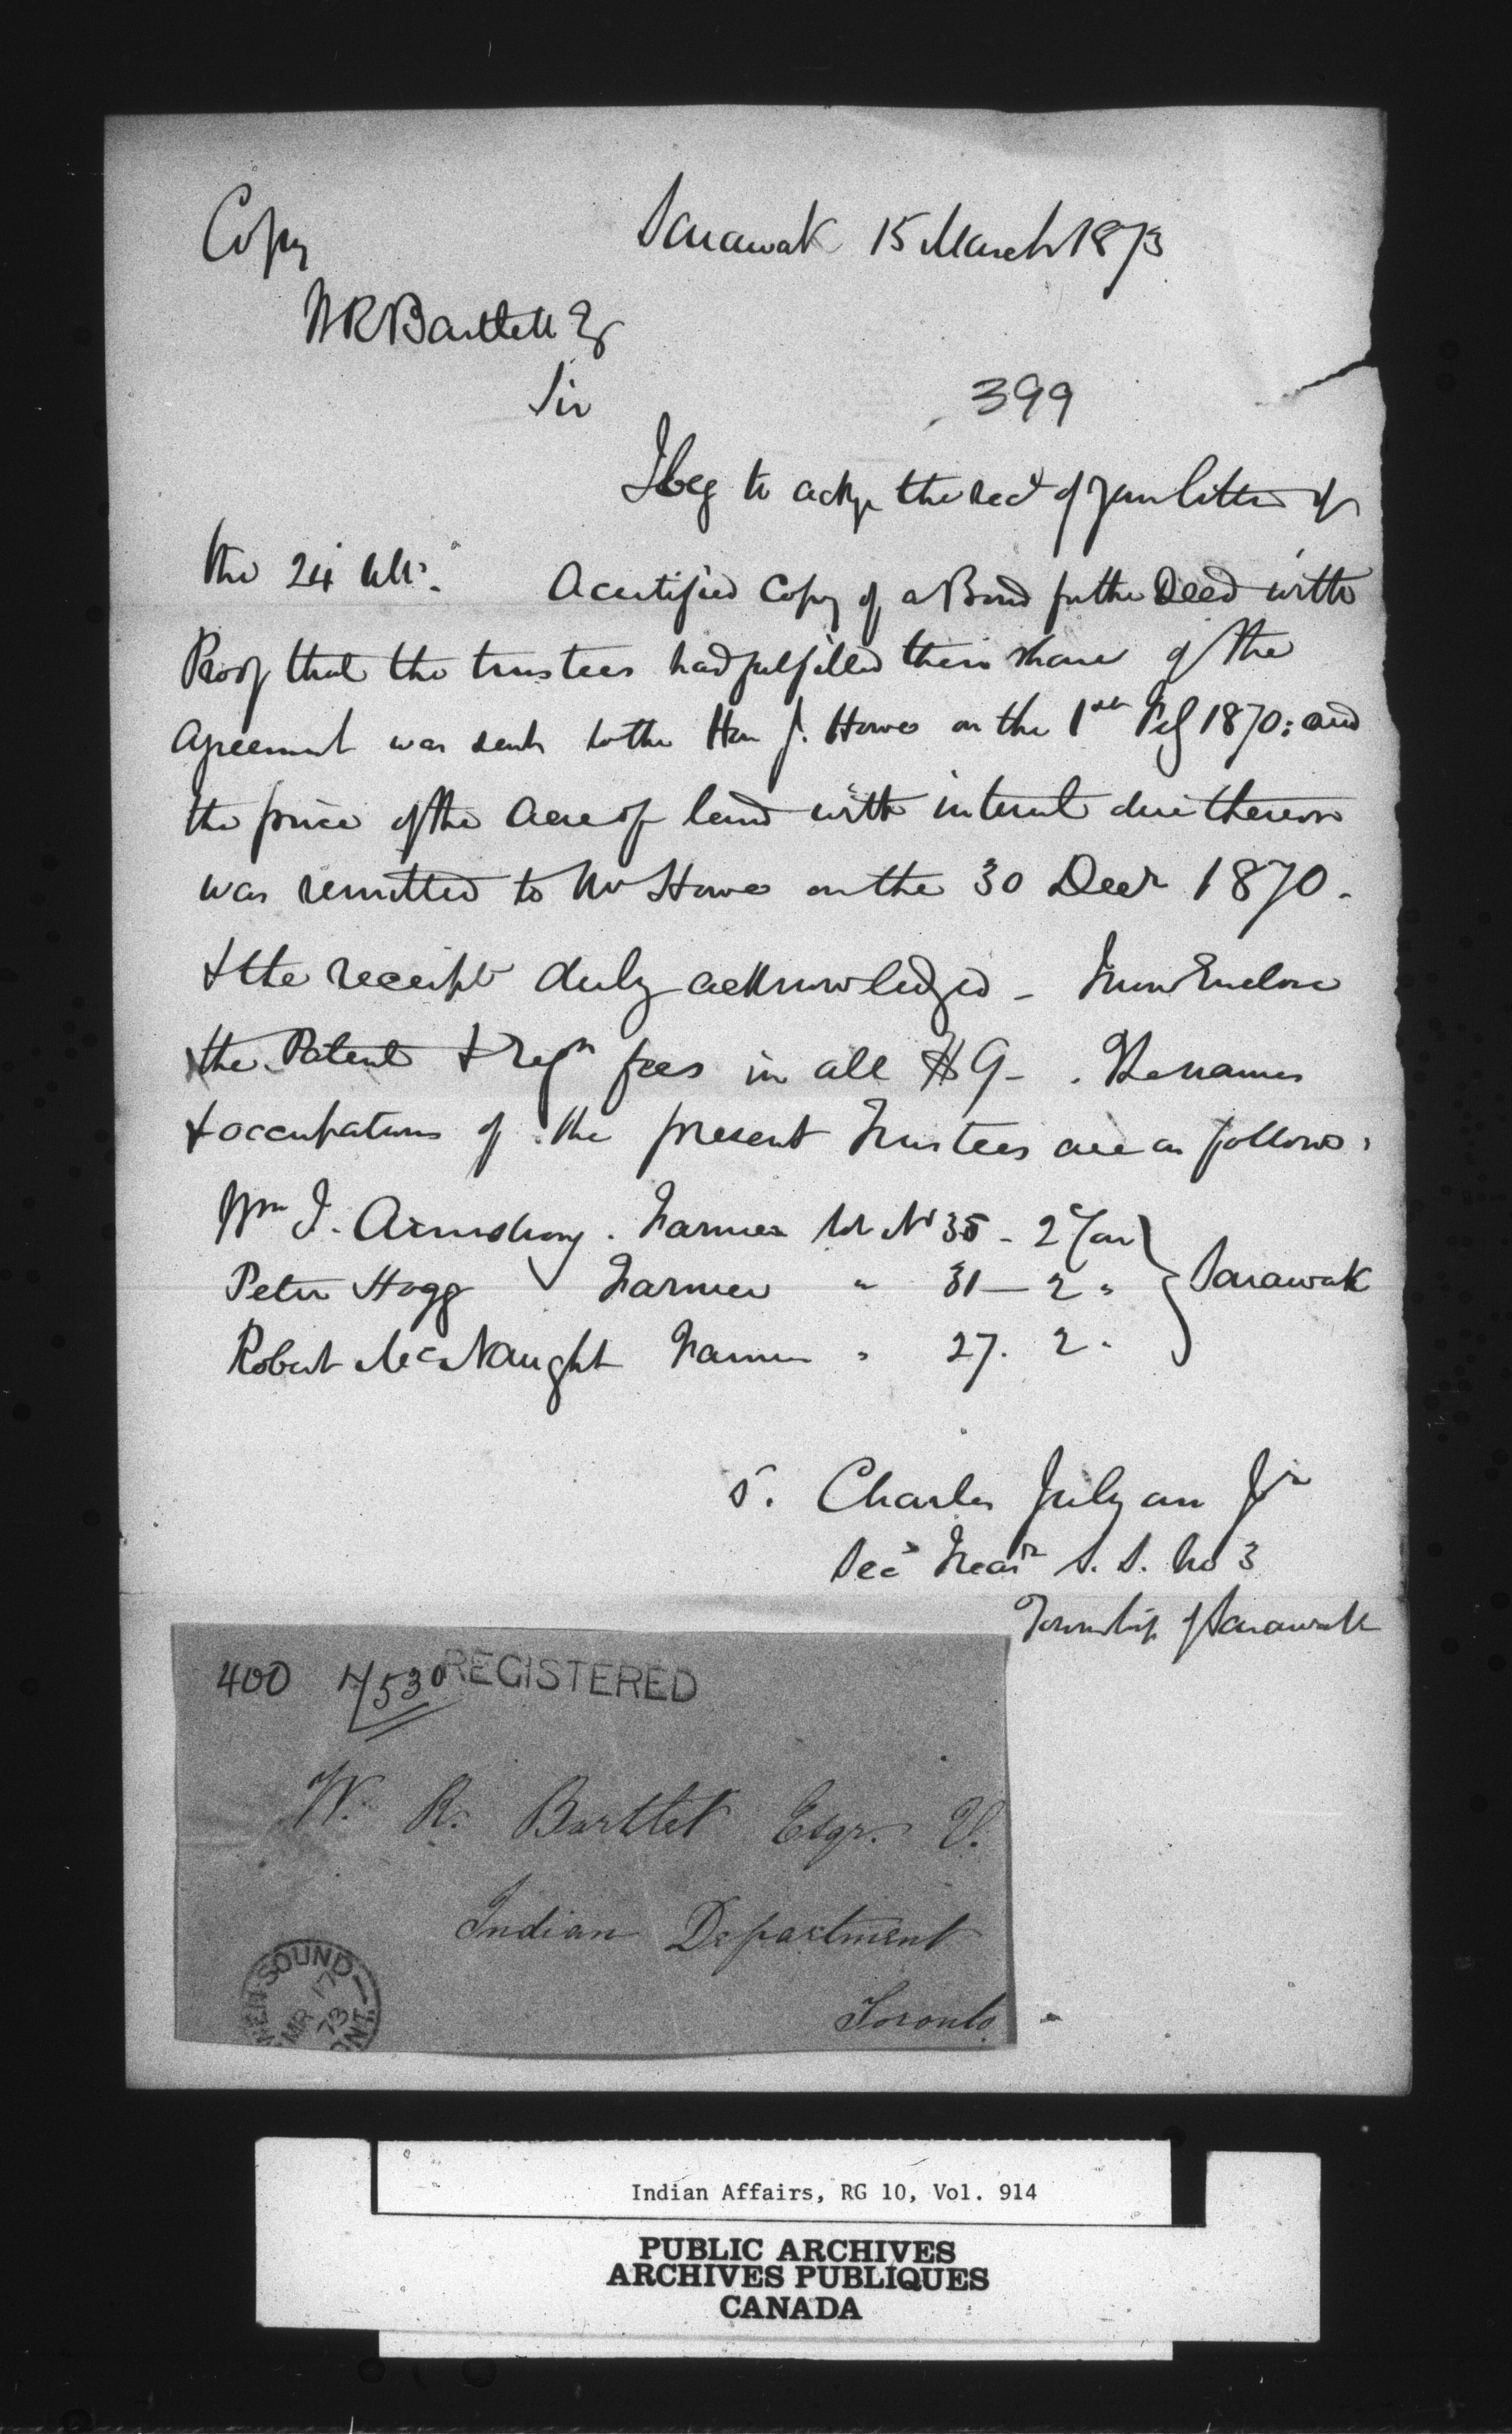 Copy Sarawak 15 March 1873
W R Bartlett Eq
Sir
399
I beg to ackge the rect of your letter of
the 24 ult. A certified Copy of a Bond for the Deed with
Proof that the trustees had fulfilled their share of the
Agreement was sent to the Hon J. Howe on the 1st Feb 1870; and
the price of the Acre of land with interest due thereon
was remitted to Mr Howe on the 30 Decr 1870.
& the receipt duly acknowledged - I now Enclose
the Patent & regn fees in all $9 - . The names
& occupations of the present Trustees are as follows,
Wm J. Armstrong . Farmer Lot No 35 - 2 Con
Peter Hogg Farmer " 31 - 2 " } Sarawak
Robert McNaught Farmer " 27. 2 "
S. Charles Julyan Jr
Secy Treasr S. S. No 3
Township of Sarawak
400 H/530 REGISTERED
W. R. Bartlet Esqr. V.
Indian Department
Toronto.
OWEN SOUND ONT.
MR 17
73
Indian Affairs, RG 10, Vol. 914
PUBLIC ARCHIVES
ARCHIVES PUBLIQUES
CANADA